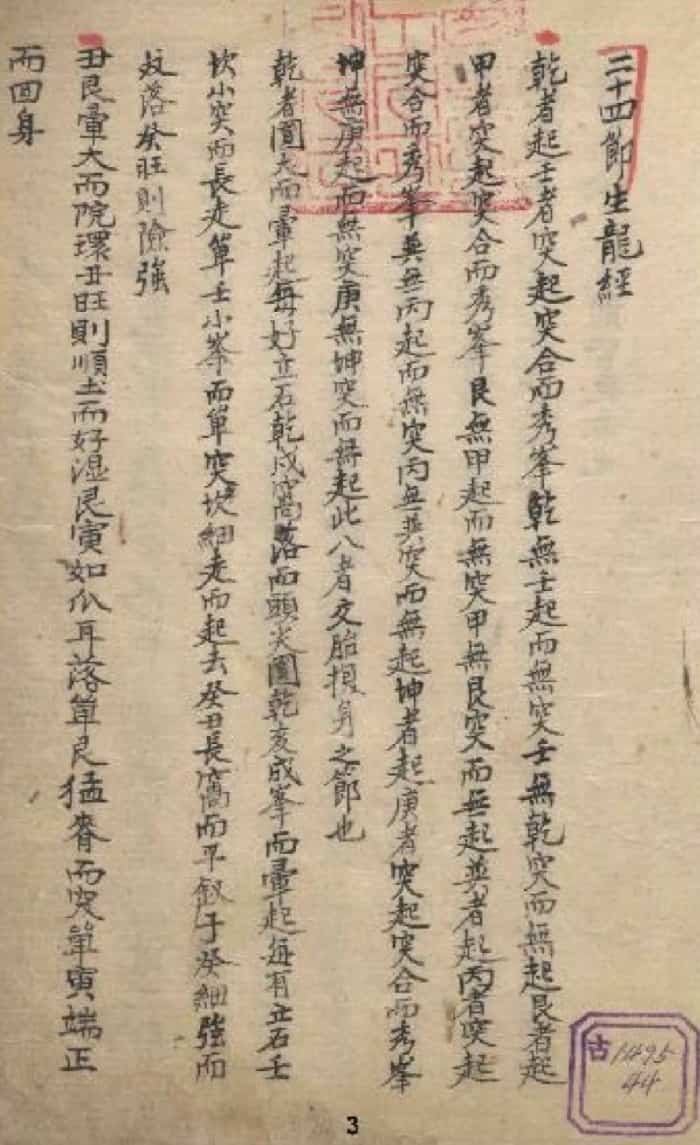 二十四節生龍經
乾者起壬者突起突合而秀峯乾無壬起而無突壬無乾突而無起艮者起
甲者突起突合而秀峯艮無甲起而無突甲無艮突而無起巽者起丙者突起
突合而秀峯巽無丙起而無突丙無巽突而無起坤者起庚者突起突合而秀峯
坤無庚起而無突庚無坤突而無起此八者交胎損身之節也
乾者圓大而暈起每好立石乾戌窩落而頭尖圓乾亥成峯而暈起每有立石壬
坎小突而長走單壬小峯而單突坎細走而起去癸丑長窩而平釵子癸細強而
落癸旺則險強
丑艮暈大而院環丑旺則順出而好湿艮寅如瓜耳落單艮猛脊而突單寅端正
而回身
古 1495
44
3